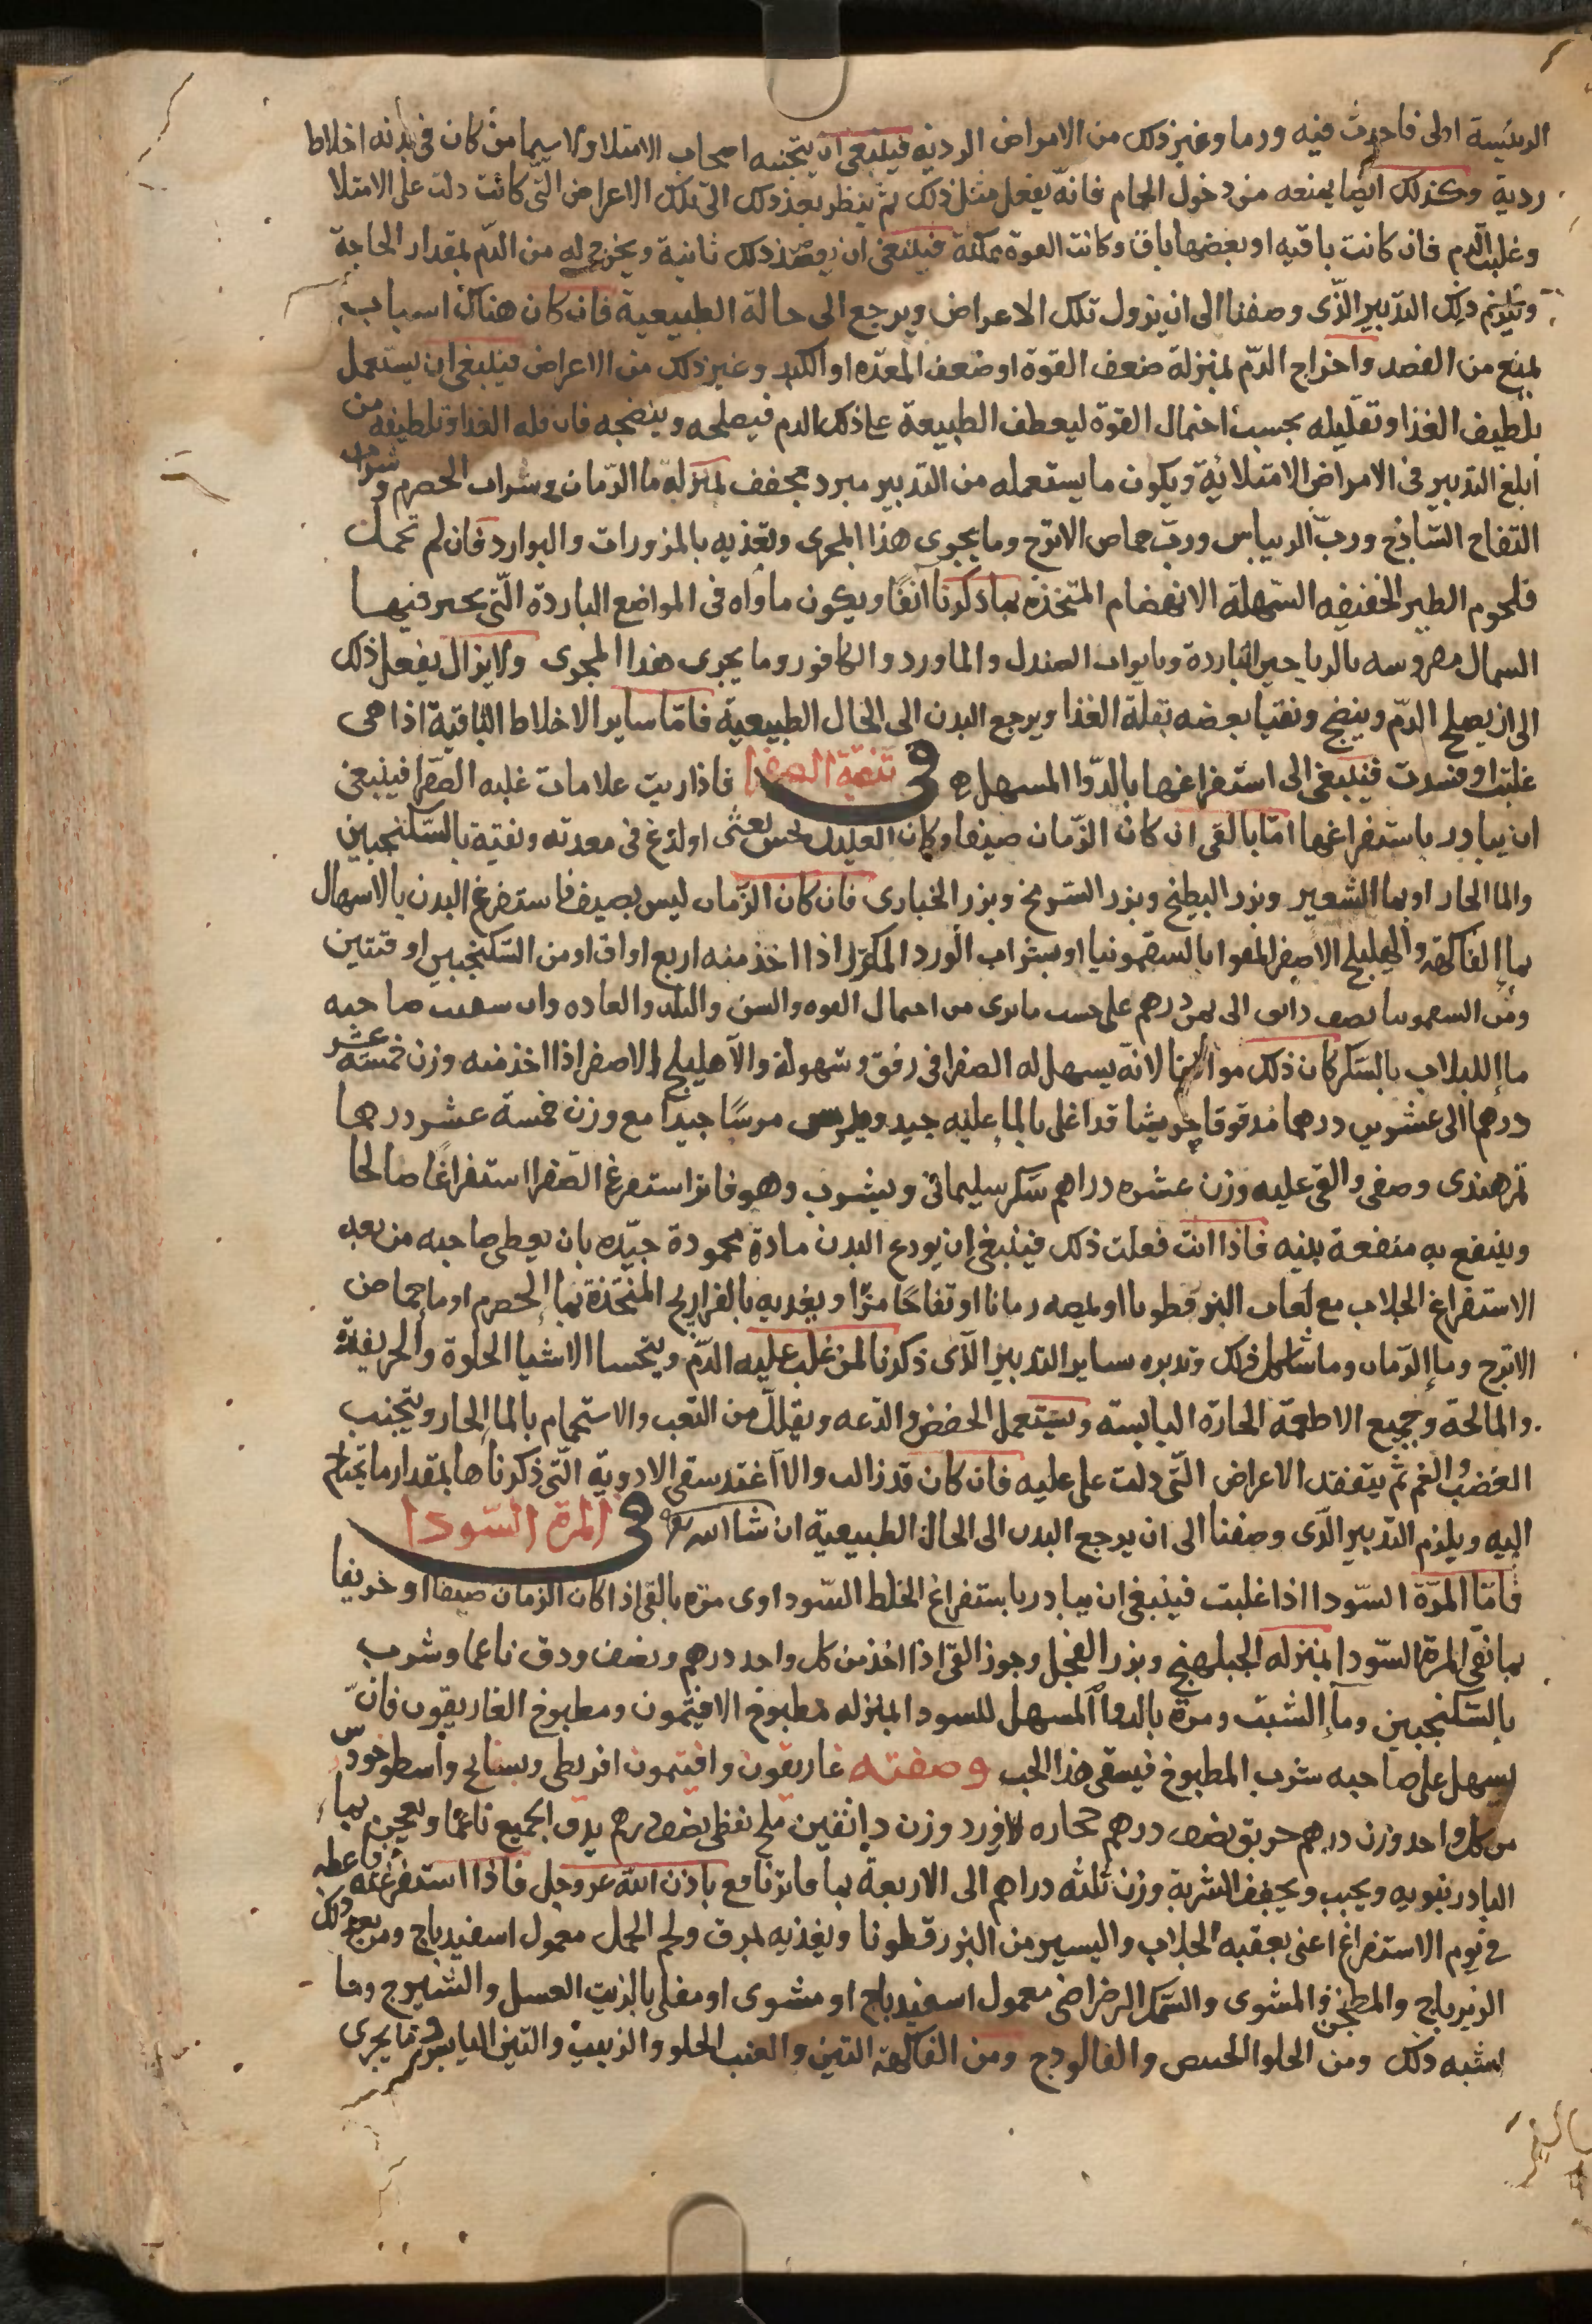 الرئيسة اولى فاحدث فيه ورما وغير ذلك من الامراض الرديه فينبغى ان يتجنبه اصحاب الامتلا ولا سيما من كان فى بدنه اخلاط
ردية وكذلك ايضا يمنعه من دخول الحمام فانه يفعل مثل ذلك ثم ينظر بعد ذلك الى تلك الاعراض التى كانت دلت على الامتلا
وغلبة الدم فان كانت باقيه او بعضها باق وكانت القوة ممكنة فينبغى ان يفصد ذلك ثانية ويخرج له من الدم بمقدار الحاجة
ويلزم ذلك التدبير الذى وصفنا الى ان يزول تلك الاعراض ويرجع الى حالة الطبيعية فان كان هناك اسباب
يمنع من الفصد واخراج الدم بمنزلة ضعف القوة او ضعف المعده او الكبد وغير ذلك من الاعراض فينبغى ان يستعمل
تلطيف الغذا وتقليله بحسب احتمال القوة ليعطف الطبيعة على ذلك الدم فيصلحه وينضجه فان قله الغدا وتلطيفه من
ابلغ التدبير فى الامراض الامتلائية ويكون ما يستعمله من التدبير مبرد مجفف بمنزلة ما الرمان وشراب الحصرم وشراب
التفاح الساذج ورب الريباس ورب حماض الاترج وما يجرى هذا المجرى وتغذيه بالمزورات والبوارد فان لم تحمل
فلحوم الطير الخفيفه السهلة الانهضام المتخذه بما ذكرنا انفًا ويكون ماواه فى المواضع الباردة التى يحبر فيها
الشمال مفروسه بالرياحين الباردة وبابواب الصندل والماورد والكافور وما يجرى هذا المجرى ولا يزال يفعل ذلك
الى ان يصلح الدم وينضج ونقيا بعضه بقلة الغذا ويرجع البدن الى الحال الطبيعية فاما ساير الاخلاط الباقية اذا هى
غلبت او فسدت فينبغى الى استفراغها بالدوا المسهل فى تنقية الصفرا فاذا ريت علامات غلبه الصفرا فينبغى
ان يبادر باستفراغها اما بالقى ان كان الزمان صيفا وكان العليل يحس بغثى او لذع فى معدته ونقية بالسكنجبين
والما الحار او بما الشعير وبزر البطيخ وبزر السرمخ وبزر الخبازى فان كان الزمان ليس بصيف فاستفرغ البدن بالاسهال
بماء الفاكهة والهليلج الاصفر المقوا بالسقمونيا او بشراب الورد المكرر اذا اخذ منه اربع اواق او من السكنجبين اوقتين
ومن السقمونيا نصف دانق الى ثمن درهم على حسب ما ترى من احتمال القوه والسن والبلد والعاده وان سقيت صاحبه
ماء اللبلاب بالسكر كان ذلك موافقا لانه يسهل له الصفرا فى رفق وسهولة والاهليلج الاصفر اذا اخذ منه وزن خمسة عشر
درهما الى عشرين درهما مدقوقا جريشا قد اغلى بالما عليه جيد ويمرس مرسًا جيدا مع وزن خمسة عشر درهما
تمر هندى وصفى والقى عليه وزن عشره دراهم سكر سليمانى ويشرب وهو فاتر استفرغ الصفرا استفراغًا صالحا
وينتفع به منفعة بينه فاذا انت فعلت ذلك فينبغى ان يودع البدن مادة محمودة جيده بان يعطى صاحبه من بعد
الاستفراغ الجلاب مع لعاب البزر قطونا او يمصه رمانا او تفاحًا مزًا ويغديه بالفراريج المتخذة بماء الحصرم او ماء حماض
الاترج وماء الرمان وما شاكل ذلك وتدبره بساير التدبير الذى ذكرنا لمن غلب عليه الدم ويتحسا الاشيا الحلوة والحريفة
والمالحة وجميع الاطعمة الحاره اليابسه ويستعمل الخفض والدعه ويقلل من التعب والاستحمام بالماء الحار ويتجنب
الغضب والغم ثم يتفقد الاعراض التى دلت على عليه فان كان قد زالت والا اعتد سقى الادوية التى ذكرناها بمقدار ما تحتاج
اليه ويلزم التدبير الذى وصفنا الى ان يرجع البدن الى الحال الطبيعية ان شا الله فى المرة السودا
فاما المرة السودا اذا غلبت فينبغى ان يبادر باستفراغ الخلط السوداوى مره بالقى اذا كان الزمان صيفا او خريفا
بما نقى المرة السودا بمنزله الجبلهنج وبزر الفجل وجوز القى اذا اخذ من كل واحد درهم ونصف ودق ناعما وشرب
بالسكنجبين وماء الشبت ومرة بالدوا المسهل للسودا بمنزله مطبوخ الافتيمون ومطبوخ الغاريقون فان
يسهل على صاحبه شرب المطبوخ فيسقى هذا الحب وصفته غاريقون وافتيمون اقريطى وبسبايج واسطوخودس
من كل واحد وزن درهم خربق نصف درهم حجاره لازورد وزن دانقين ملح نفطى نصف درهم يدق الجميع ناعمًا ويعجن بماء
البادرنبويه ويحبب ويجفف الشربة وزن ثلثه دراهم الى الاربعة بما فاتر نافع باذن الله عز وجل فاذا استفرغته فاعطه
فى يوم الاستفراغ اعنى بعقبه الجلاب واليسير من البزر قطونا ويغذيه بمرق ولحم الحمل معمول اسفيدباج ومن بعد ذلك
الزيرباج والمطجن والمشوى والسمك الرضراضى معمول اسفيدباج او مشوى او مقلى بالزيت العسل والشيرج وما
اشبه ذلك ومن الحلوا الخبيص والفالودج ومن الفاكهة التين والعنب الحلو والزبيب والتين اليابس وما يجرى